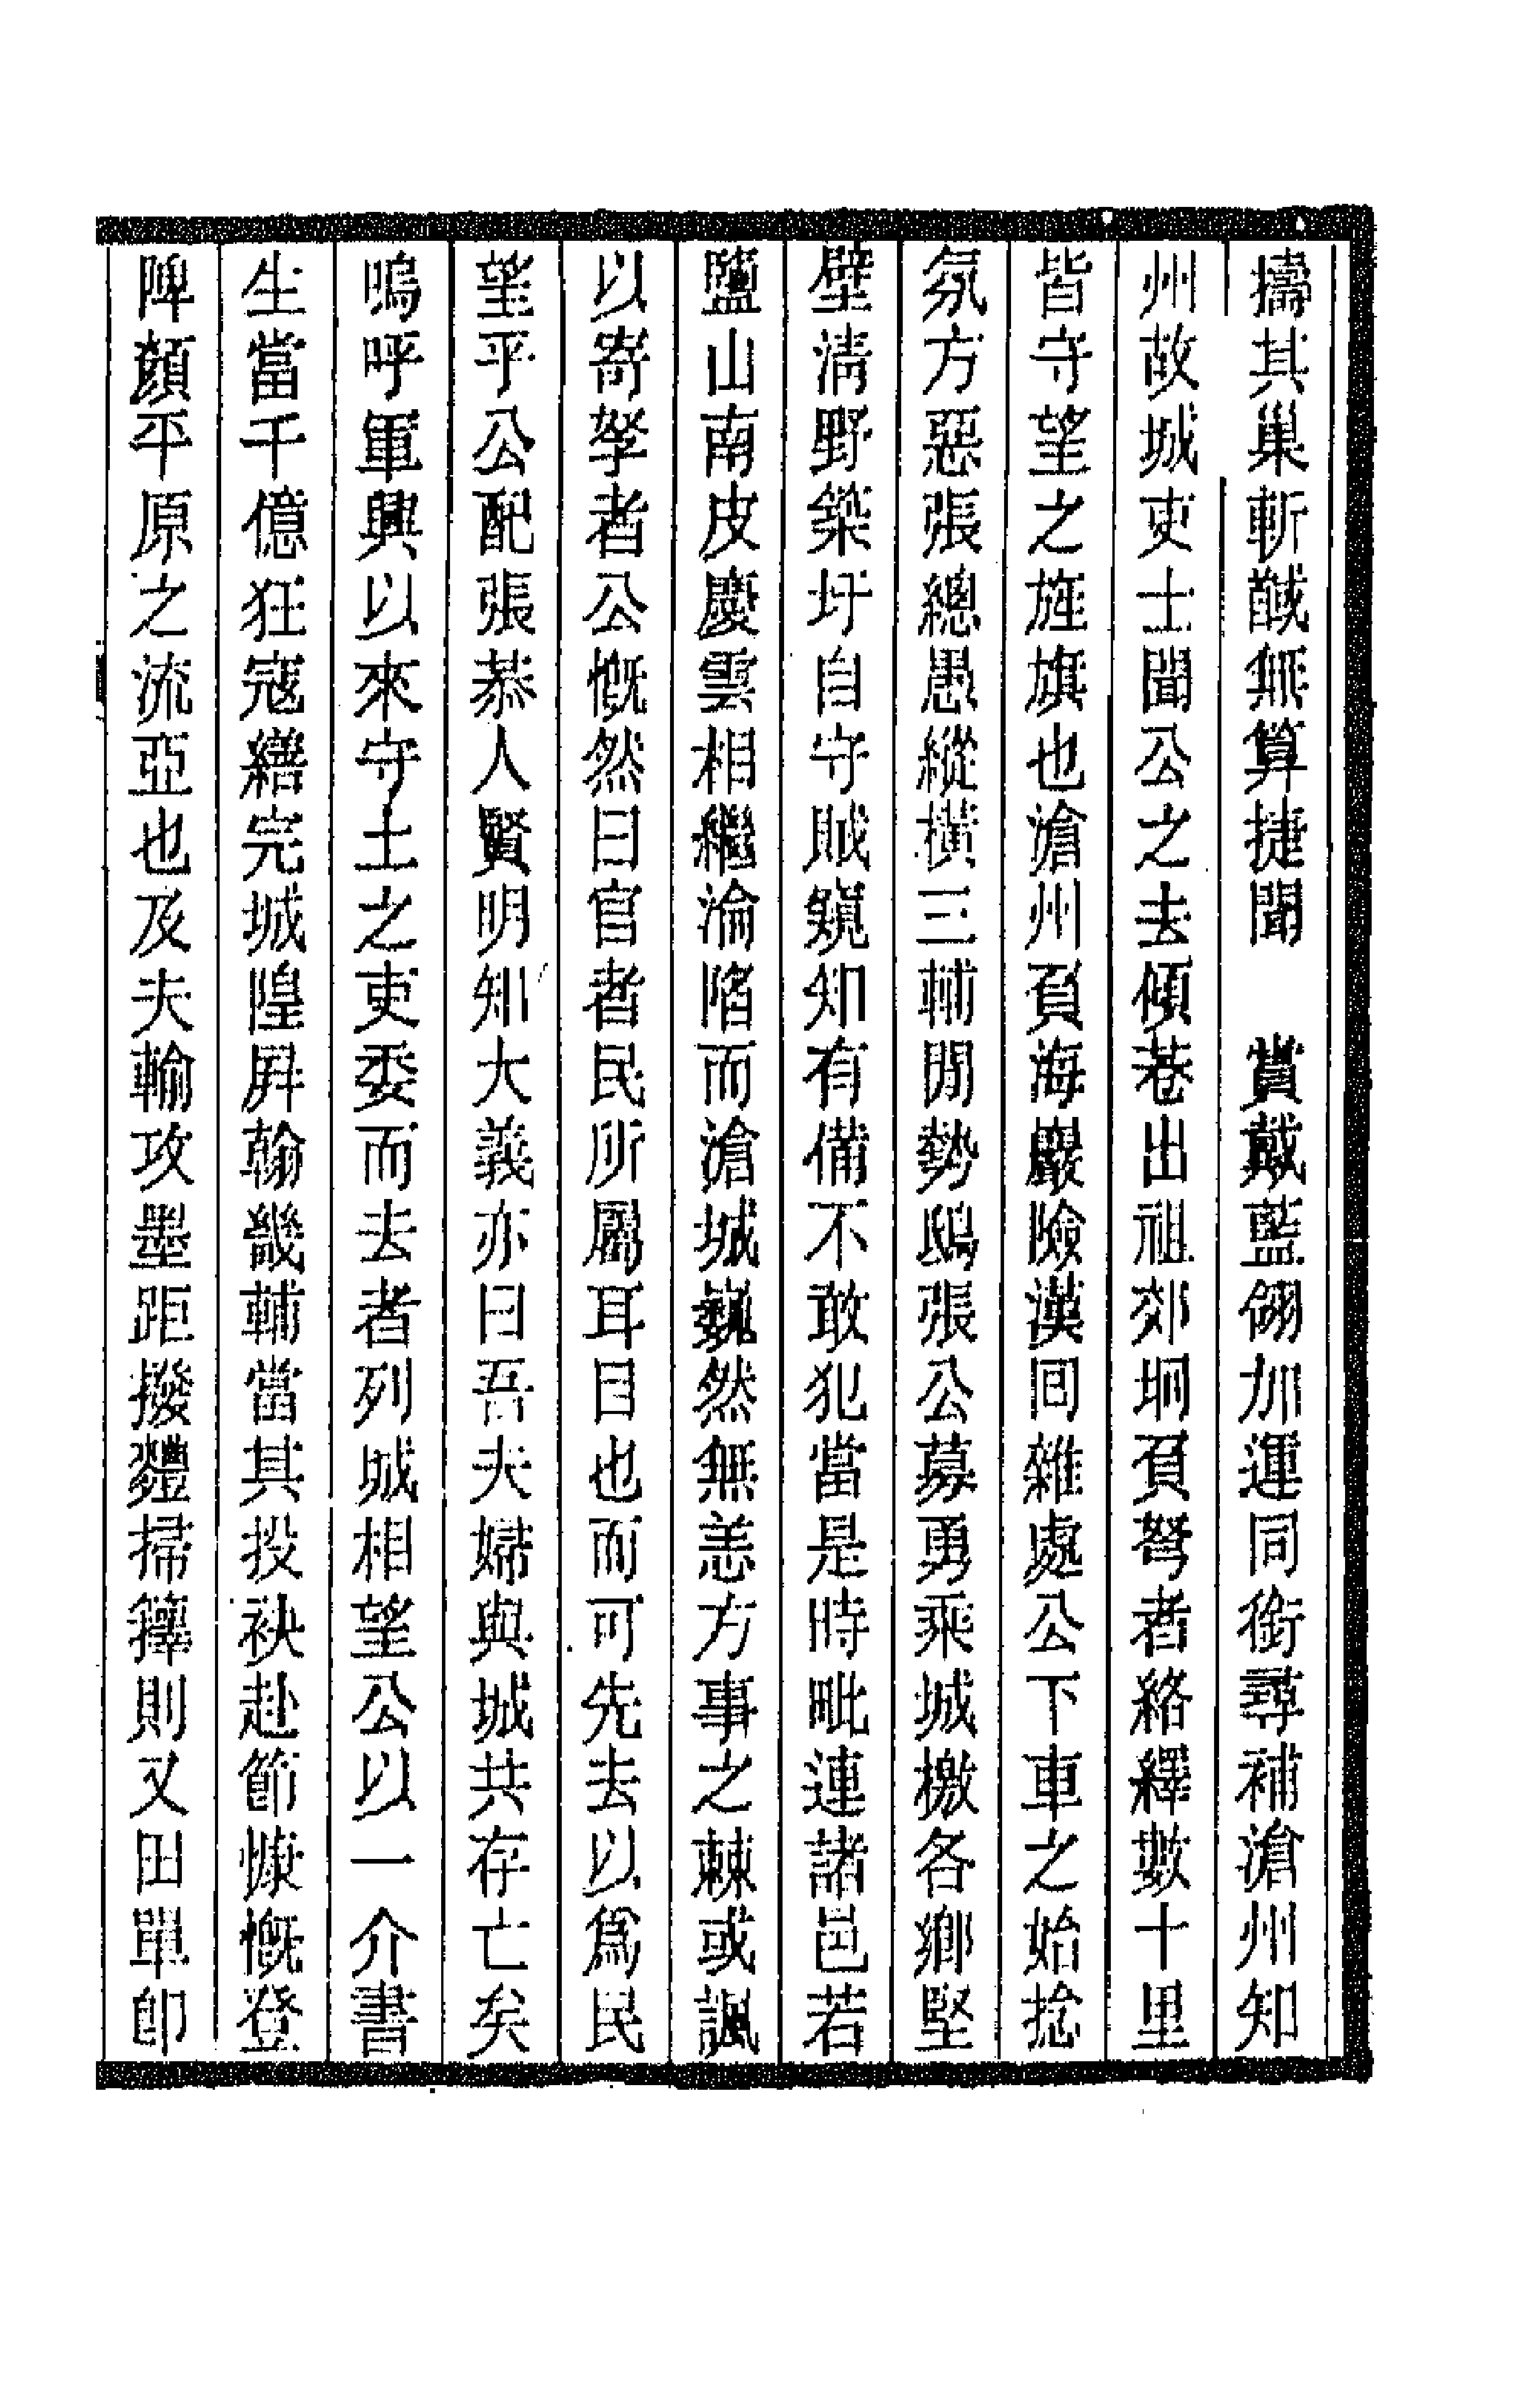 擣其巢斬馘無算捷聞　賞戴藍翎加運同銜尋補滄州知
州故城吏士聞公之去傾巷出祖郊坰負弩者絡繹數十里
皆守望之旌旗也滄州負海巖險漢回雜處公下車之始捻
氛方惡張總愚縱橫三輔閒勢鴟張公募勇乘城檄各鄉堅
壁淸野築圩自守賊窺知有備不敢犯當是時毗連諸邑若
鹽山南皮慶雲相繼淪陷而滄城巍然無恙方事之棘或諷
以寄孥者公慨然曰官者民所屬耳目也而可先去以爲民
望乎公配張恭人賢明知大義亦曰吾夫婦與城共存亡矣
嗚呼軍興以來守土之吏委而去者列城相望公以一介書
生當千億狂寇繕完城隍屏翰畿輔當其投袂赴節慷慨登
陴顏平原之流亞也及夫輸攻墨距撥麷掃籜則又田單卽